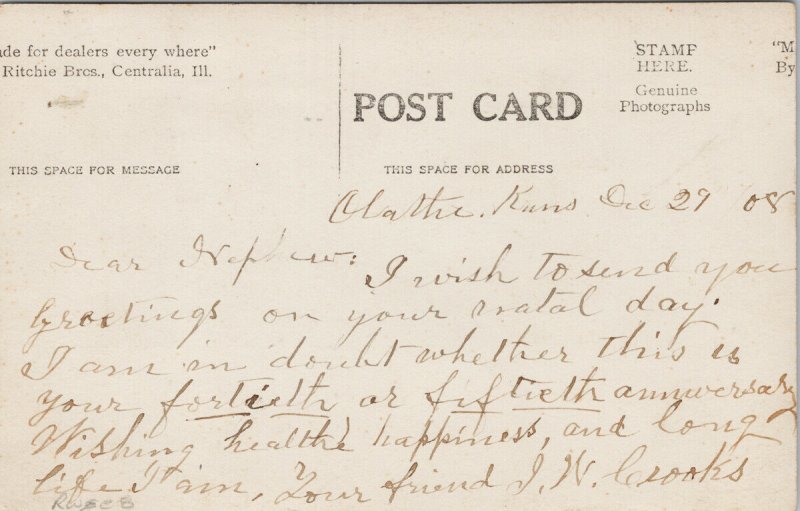 ade for dealers every where"
Ritchie Bros., Centralia, Ill.
POST CARD
STAMP
HERE.
Genuine
Photographs
"M
By
THIS SPACE FOR MESSAGE
THIS SPACE FOR ADDRESS
Olathe. Kans Dec 29 08
Dear Nephew:
I wish to send you
Greetings on your natal day.
I am in doubt whether this is
your fortieth or fiftieth anniversary
Wishing healthe happiness, and long
life I am, Your friend J. W. Crooks